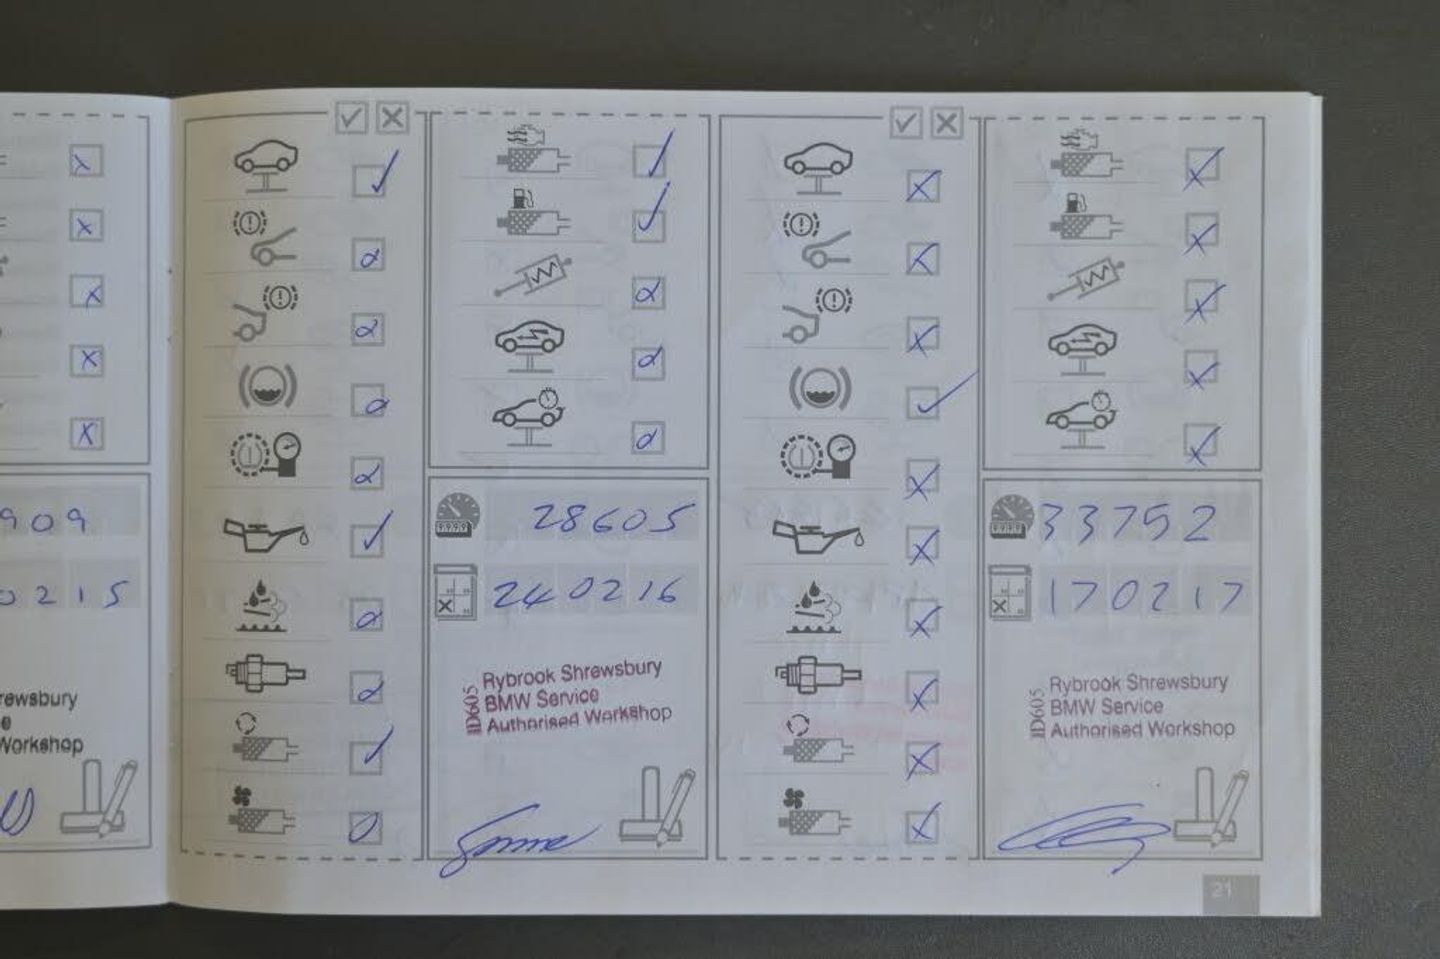 909
0215
rewsbury
e
Workshop
28605
240216
ID605
Rybrook Shrewsbury
BMW Service
Authorised Workshop
33752
170217
ID605
Rybrook Shrewsbury
BMW Service
Authorised Workshop
21